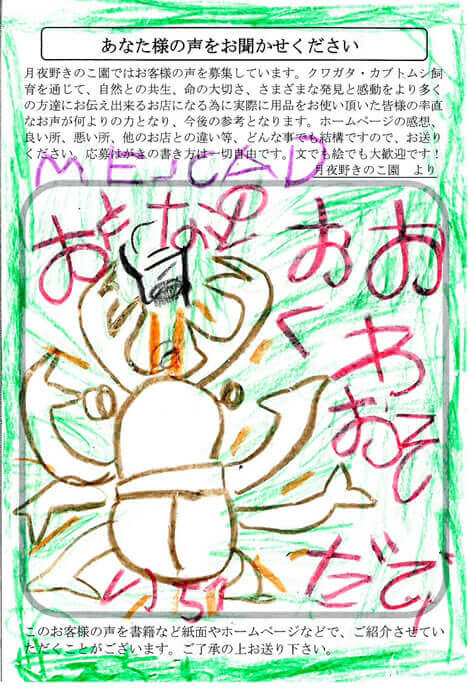 あなた様の声をお聞かせください
月夜野きのこ園ではお客様の声を募集しています。クワガタ・カブトムシ飼
育を通じて、自然との共生、命の大切さ、さまざまな発見と感動をより多く
の方達にお伝え出来るお店になる為に実際に用品をお使い頂いた皆様の率直
なお声が何よりの力となり、今後の参考となります。ホームページの感想、
良い所、悪い所、他のお店との違い等、どんな事でも結構ですので、お送り
ください。応募はがきの書き方は一切自由です。文でも絵でも大歓迎です！
月夜野きのこ園　より
MEJCAD
おとなの
おお
くわ
おそ
だぞ
このお客様の声を書籍など紙面やホームページなどで、ご紹介させてい
ただくことがございます。ご了承の上お送り下さい。